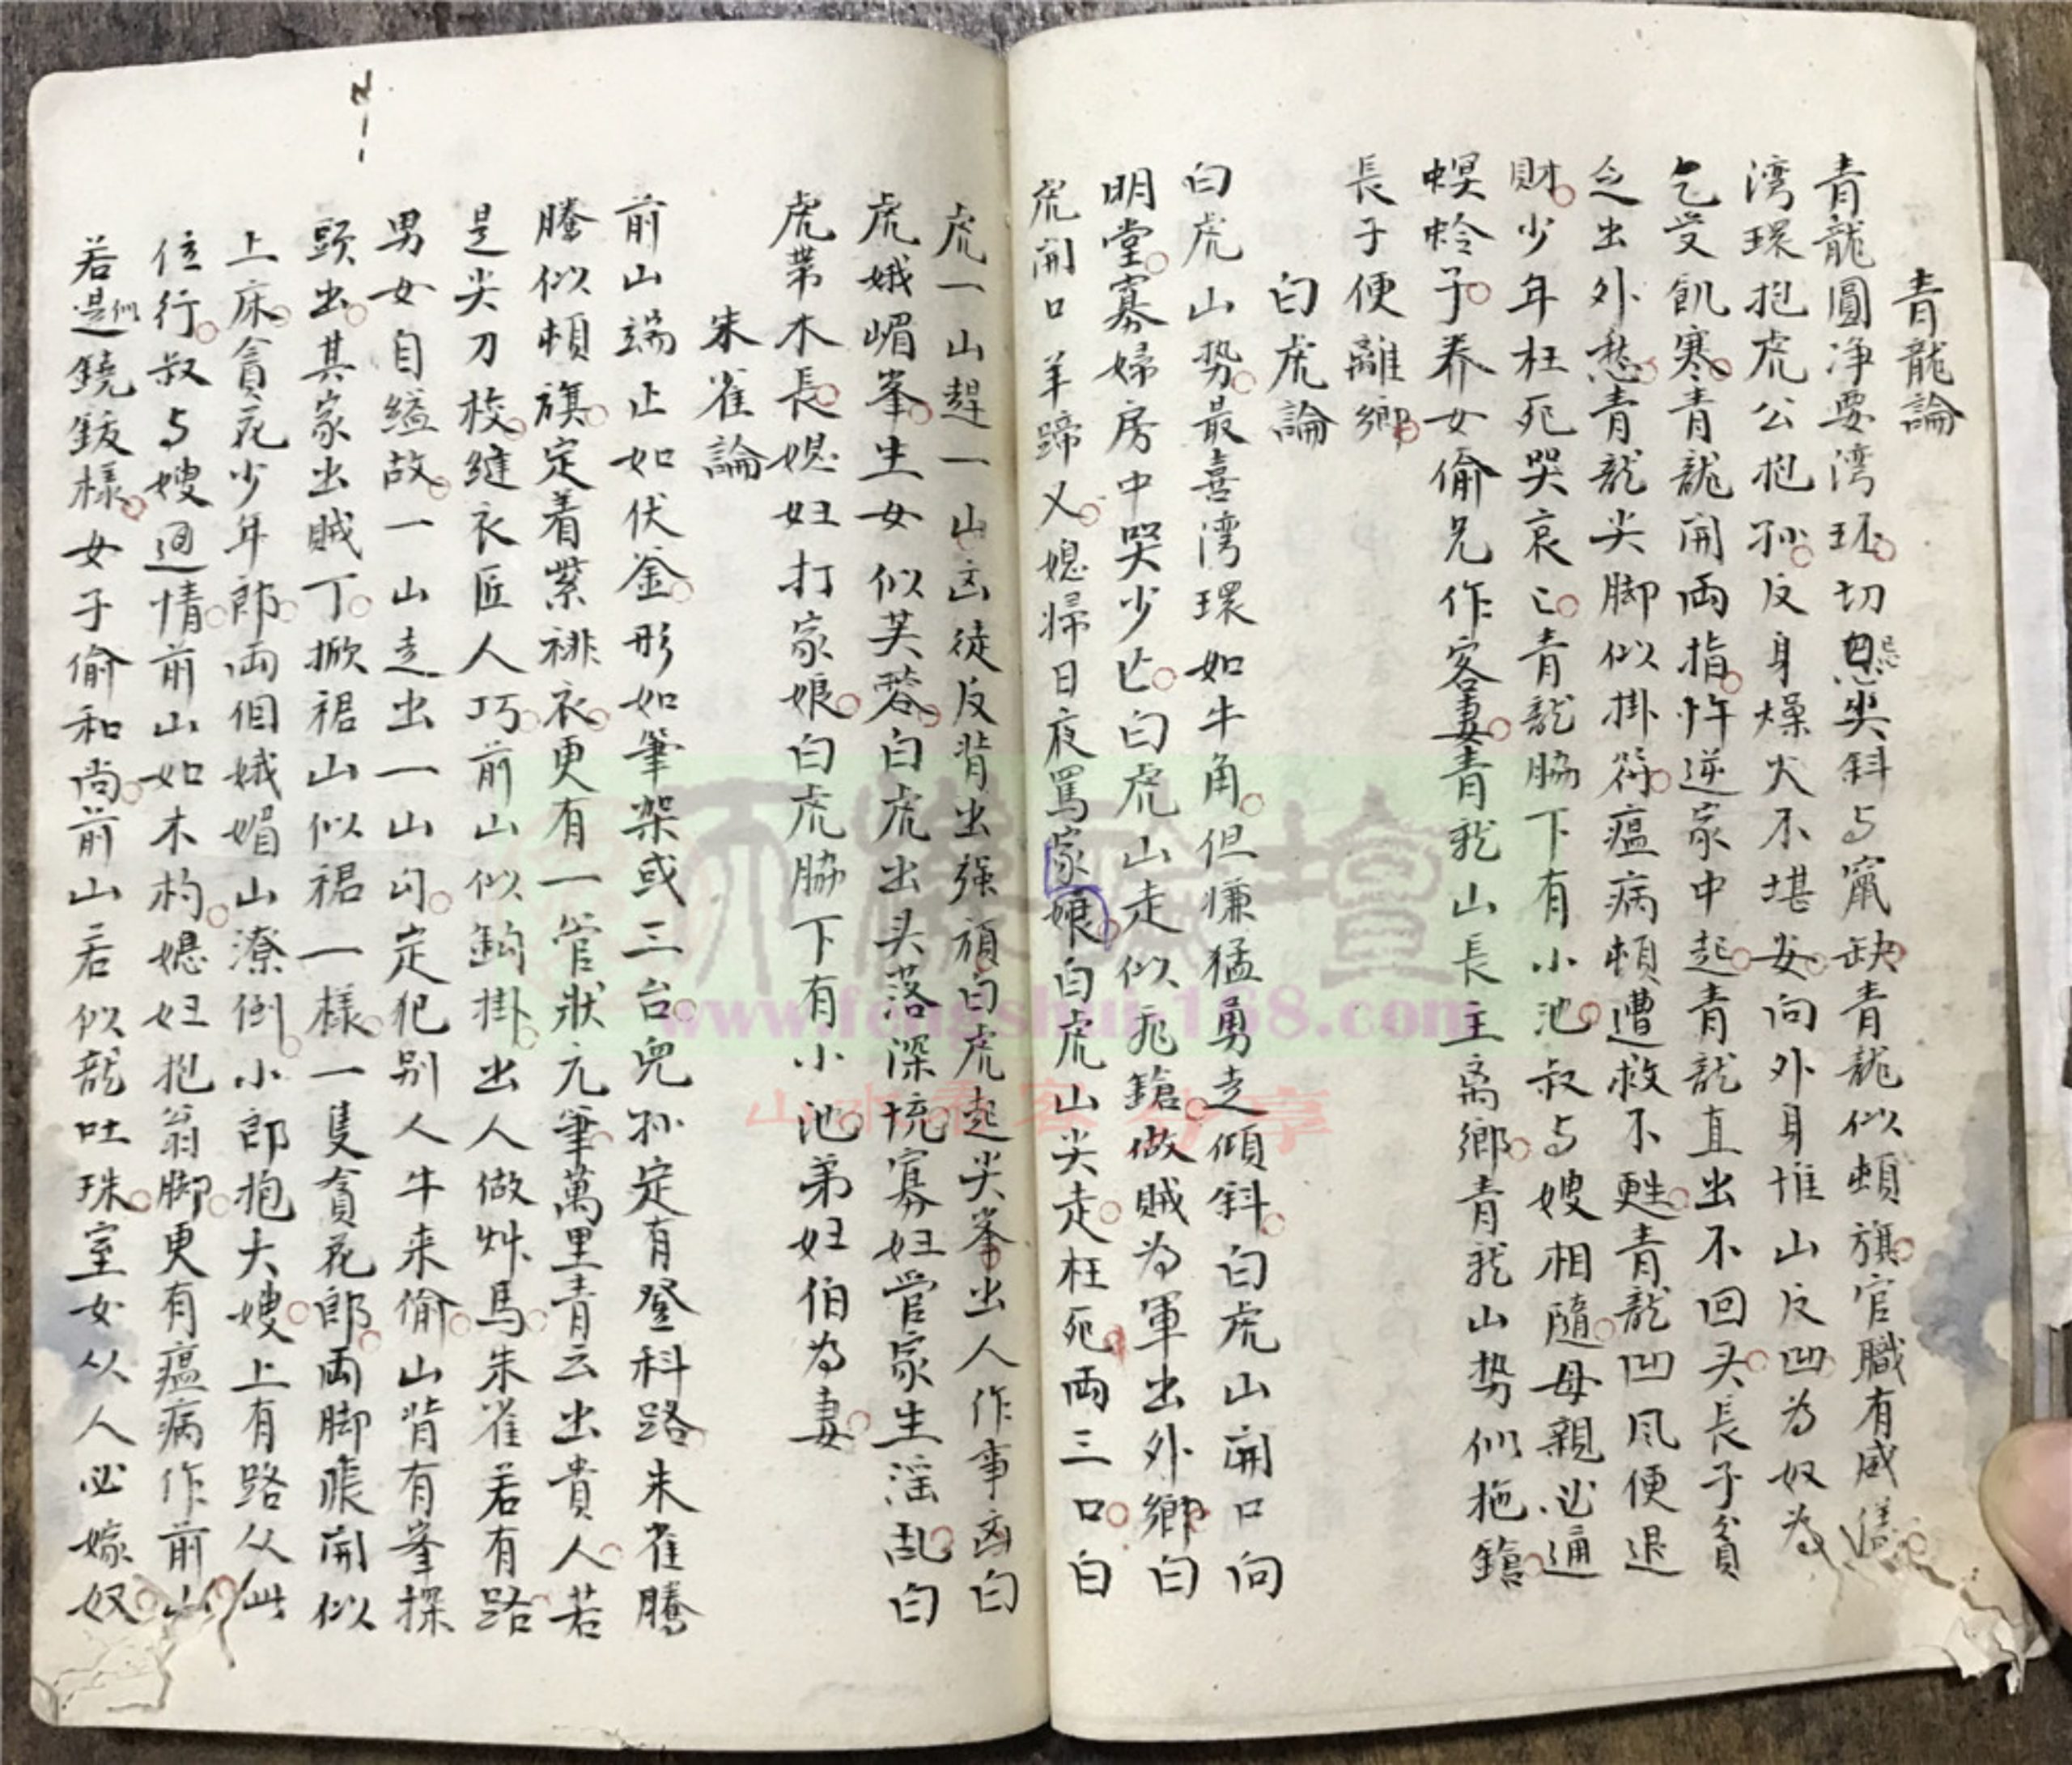 青龍論
青龍圓净要湾环切忌尖斜与窜缺青龍似頓旗官職有威儀
湾環抱虎公抱孙反身燥火不堪安向外身堆山反凹为奴为
乞受飢寒青龍開両指忤逆家中起青龍直出不回头長子貧
乏出外愁青龍尖脚似掛符瘟病頓遭救不甦青龍凹风便退
財少年枉死哭哀哀青龍脇下有小池叔与嫂相隨母親必通
螟蛉子养女偷兄作客妻青龙山長主离鄉青龙山势似拖鎗
長子便離鄉
白虎論
白虎山势最喜湾環如牛角但嫌猛勇走傾斜白虎山開口向
明堂寡婦房中哭少亡白虎山走似飛鎗做賊为軍出外鄉白
虎開口羊蹄义媳婦日夜罵家娘白虎山尖走枉死両三口白
虎一山趕一山凶徒反背出强頑白虎起尖峯出人作事凶白
虎娥嵋峯生女似芙蓉白虎出头落深坑寡妇管家生淫乱白
虎第木長媳妇打家娘白虎脇下有小池弟妇伯为妻
朱雀論
前山端正如伏釜形如筆架或三台兒孙定有登科路朱雀騰
騰似頓旗定着紫袍衣更有一管狀元筆萬里青云出貴人若
是尖刀校縫衣匠人巧前山似鈎掛出人做州馬朱雀若有路
男女自縊故一山走出一山勾定犯别人牛来偷山背有峯探
頭出其家出賊丁掀裙山似裙一樣一隻貪花郎両脚賬開似
上床貪花少年郎両個娥媚山潦倒小郎抱大嫂上有路从此
位行叔与嫂通情前山如木杓媳妇抱翁脚更有瘟病作前山
若是似鐃鈸樣女子偷和尚前山若似龍吐珠室女从人必嫁奴
天機論壇
www.fengshui-168.com
山水看客 分享